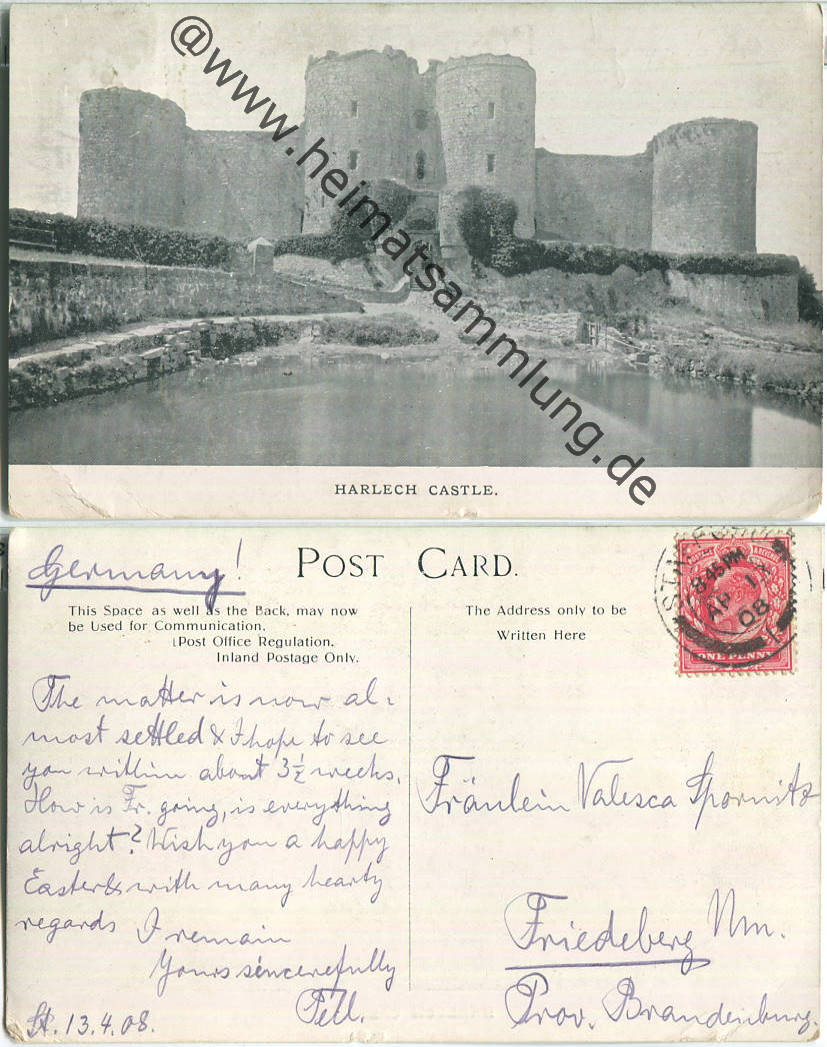 @www.heimatsammlung.de
HARLECH CASTLE.
Germany!
POST CARD.
This Space as well as the Back, may now
be Used for Communication.
(Post Office Regulation.
Inland Postage Only.
The Address only to be
Written Here
8.45 PM
AP 1
08
ONE PENNY
The matter is now al-
most settled & I hope to see
you within about 3½ weeks.
How is Fr. going, is everything
alright? Wish you a happy
Easter & with many hearty
regards
I remain
Yours sincerefully
St. 13.4.08.
Fräulein Valesca Spornitz
Friedeberg Nm.
Prov. Brandenburg.